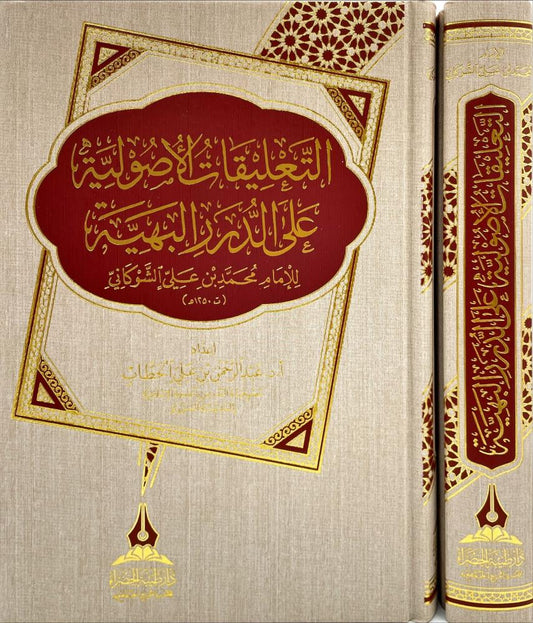 التَّعْلِيقَاتُ الأُصُولِيَّةُ
عَلَى الدُّرَرِ البَهِيَّةِ
لِلإِمَامِ مُحَمَّد بْن عَلِيّ الشَّوْكَانِيّ
(ت ١٢٥٠هـ)
إعداد
أ.د. عبد الرحمن بن علي الحطاب
دار طيبة الخضراء
محمد بن علي الشوكاني
التعليقات الأصولية على الدرر البهية
دار طيبة الخضراء